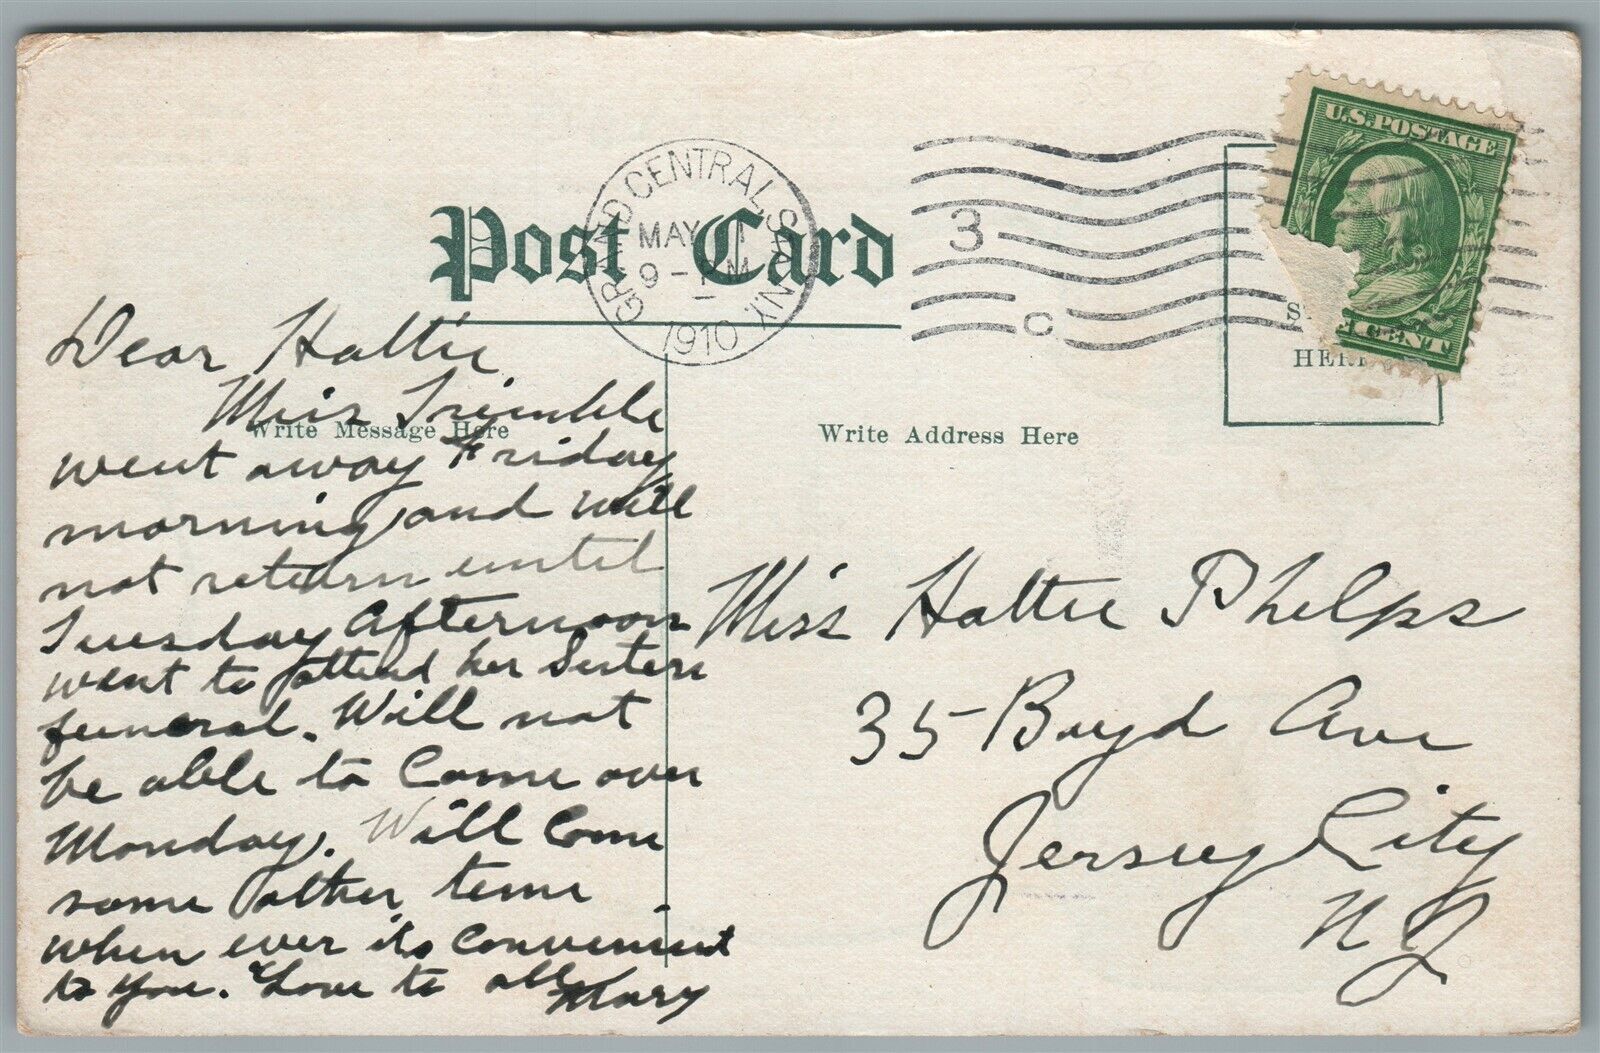 Post Card
GRAND CENTRAL STA. N.Y.
MAY
9 - PM
1910
3
C
U.S. POSTAGE
1 CENT
HERE
Write Message Here
Write Address Here
Dear Hattie
Miss Trimble
went away Friday
morning and will
not return until
Tuesday Afternoon
went to attend her Sisters
funeral. Will not
be able to Come over
Monday. Will Come
some other time
when ever its Convenient
to you. Love to all
Mary
Miss Hattie Phelps
35 Boyd Ave
Jersey City
N J